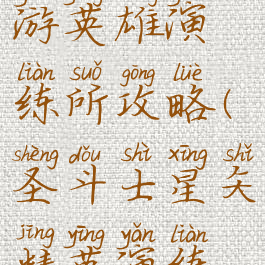 游英雄演
liàn suǒ gōng lüè
练所攻略(
shèng dǒu shì xīng shǐ
圣斗士星矢
jīng yīng yǎn liàn